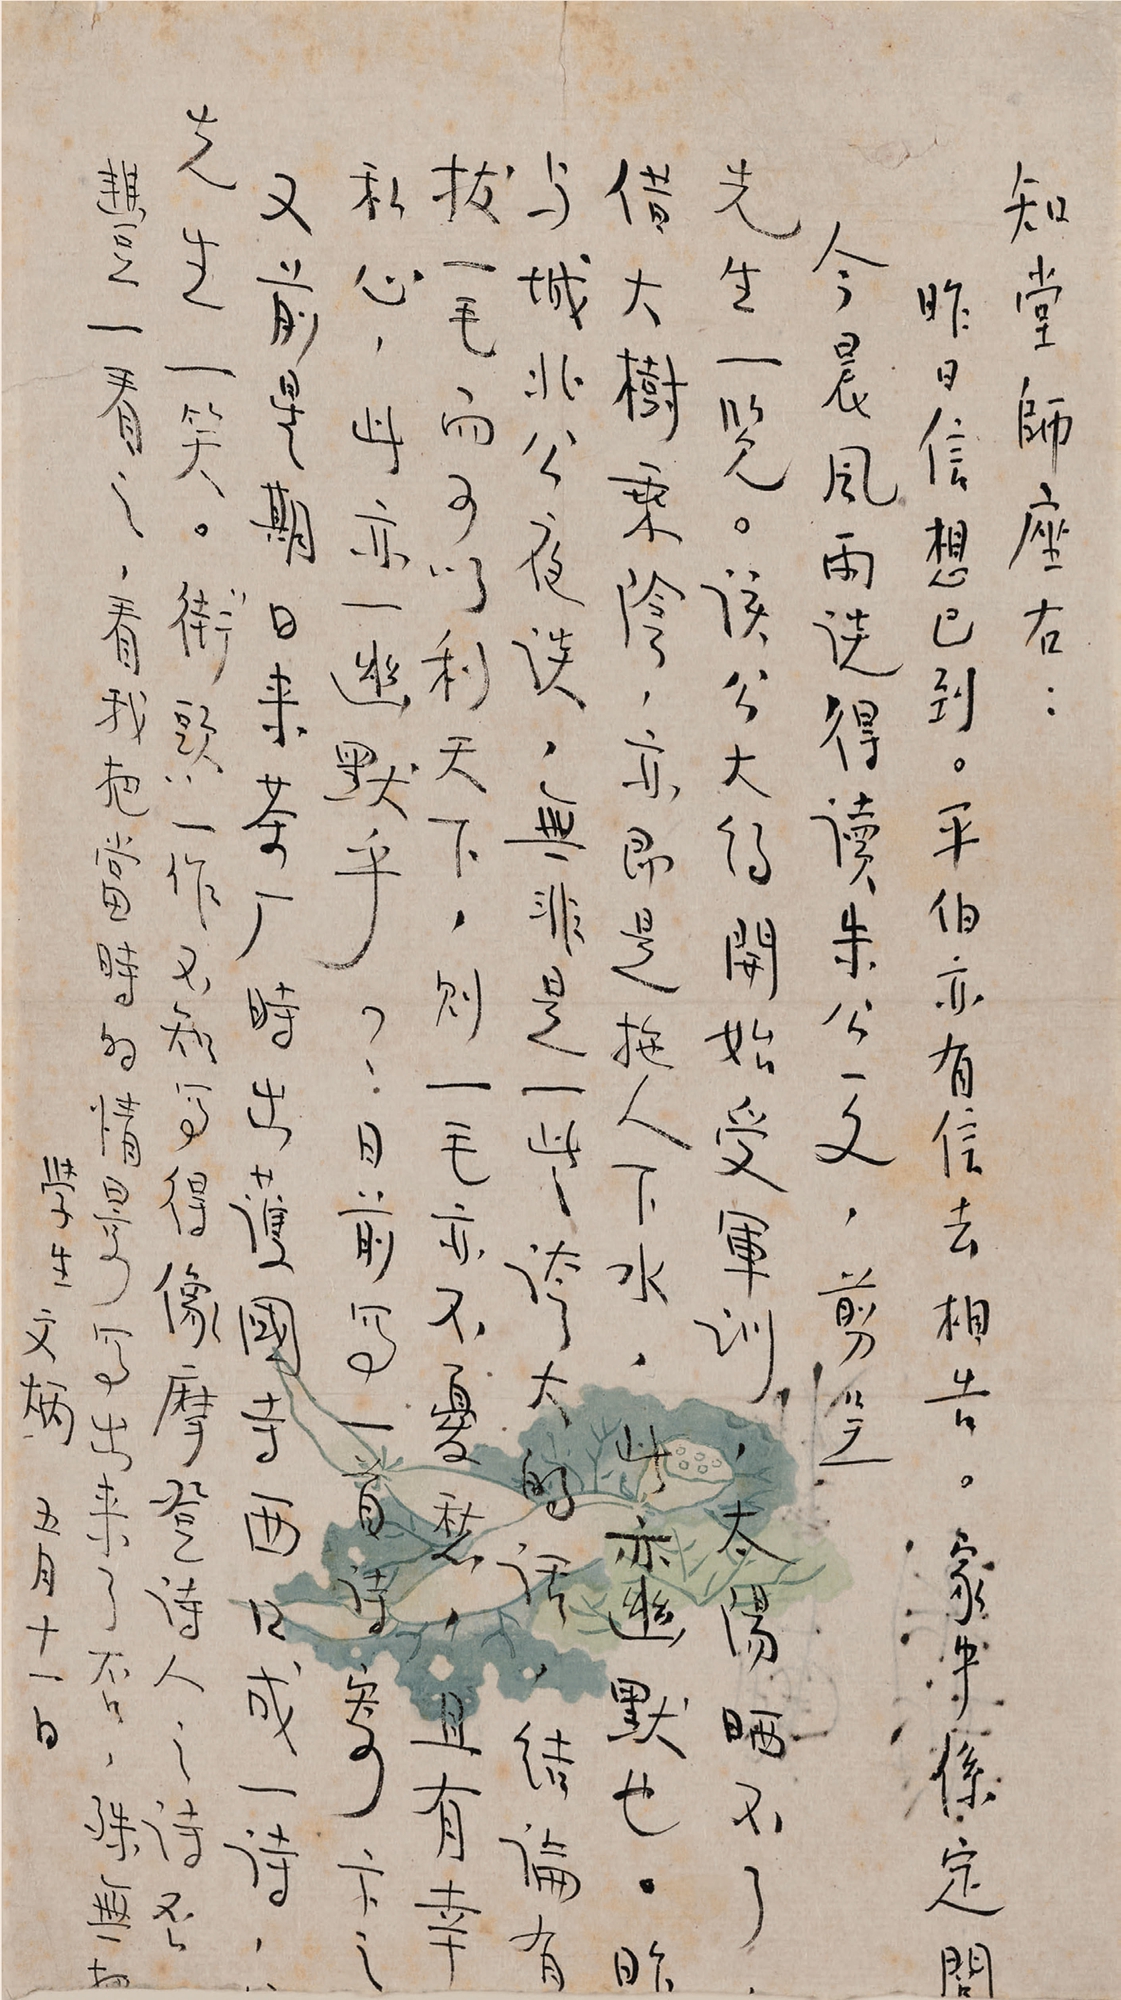 知堂師座右：
昨日信想已到。平伯亦有信去相告。家事係定閤
今晨風雨談得讀朱公一文，剪呈
先生一覽。該公大約開始受軍訓，太陽晒不了，
借大樹乘陰，亦即是拖人下水，此亦幽默也。昨
与城北公夜談，無非是一些誇大的話，結論有
拔一毛而可以利天下，則一毛亦不憂愁，且有幸
私心，此亦一幽默乎？：日前写一首詩寄卞之
又前星期日来苦广時出護國寺西口成一詩，
先生一笑。街頭一作不知写得像摩登詩人之詩否
豈一看之，看我把當時的情景写出来了否，殊無
學生文炳 五月十一日